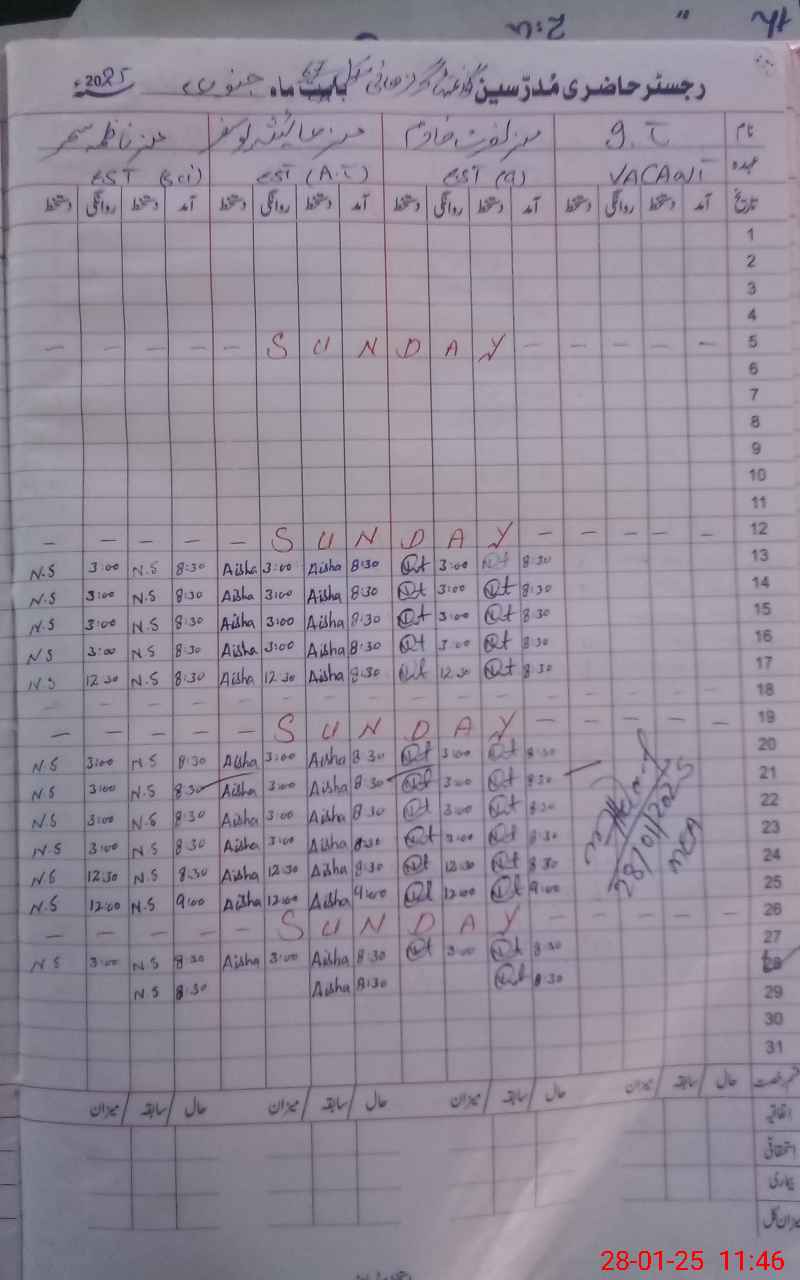 رجسٹر حاضری مُدرّسین گورنمنٹ گرلز ہائی سکول بابت ماہ جنوری 2025ء
نام J.T مسز عائشہ یوسف مسز فاطمہ سحر
عہدہ VACANT EST (G) EST (A.T) EST (Sci)
تاریخ آمد دستخط روانگی دستخط آمد دستخط روانگی دستخط آمد دستخط روانگی دستخط آمد دستخط روانگی دستخط
1
2
3
4
— — — — — S U N D A Y — — — — — 5
6
7
8
9
10
11
— — — — — S U N D A Y — — — — — 12
N.S 3:00 N.S 8:30 Aisha 3:00 Aisha 8:30 3:00 8:30 13
N.S 3:00 N.S 8:30 Aisha 3:00 Aisha 8:30 3:00 8:30 14
N.S 3:00 N.S 8:30 Aisha 3:00 Aisha 8:30 3:00 8:30 15
N S 3:00 N S 8:30 Aisha 3:00 Aisha 8:30 3:00 8:30 16
N.S 12:30 N.S 8:30 Aisha 12:30 Aisha 8:30 12:30 8:30 17
18
— — — — — S U N D A Y — — — — — 19
N.S 3:00 N S 8:30 Aisha 3:00 Aisha 8:30 3:00 8:30 20
N.S 3:00 N.S 8:30 Aisha 3:00 Aisha 8:30 3:00 8:30 21
N.S 3:00 N.S 8:30 Aisha 3:00 Aisha 8:30 3:00 8:30 22
N.S 3:00 N.S 8:30 Aisha 3:00 Aisha 8:30 3:00 8:30 23
N.S 12:30 N.S 8:30 Aisha 12:30 Aisha 8:30 12:30 8:30 24
N.S 12:00 N.S 9:00 Aisha 12:00 Aisha 9:00 12:00 9:00 25
28/01/2025
— — — — — S U N D A Y — — — — — 26
N S 3:00 N.S 8:30 Aisha 3:00 Aisha 8:30 3:00 8:30 27
N.S 8:30 Aisha 8:30 8:30 28
29
30
31
حال / سابقہ / میزان حال / سابقہ / میزان حال / سابقہ / میزان حال / سابقہ / میزان
اتفاقیہ
استحقاقی
بیماری
میزان کل
28-01-25 11:46